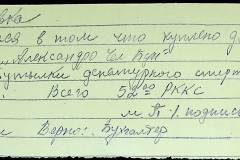 вка
ся в том что куплено д
"Александров Ем Бун"
бутылки денатурного спирт
: Всего 52 00 РККС
м П ч. подпись
и Верно: Бухгалтер